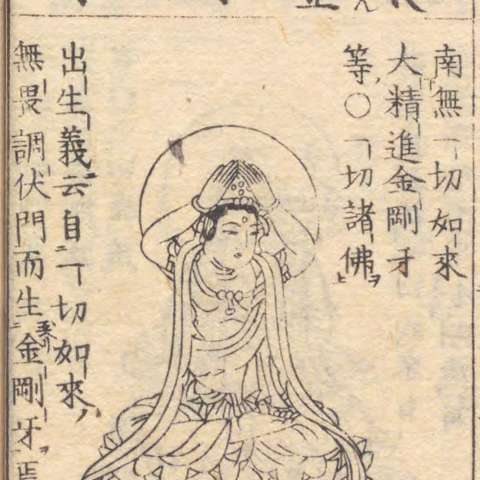 南無一切如來
大精進金剛牙
等、○一切諸佛ヲ
出生義云自一切如來、
無畏調伏門而生金剛牙焉